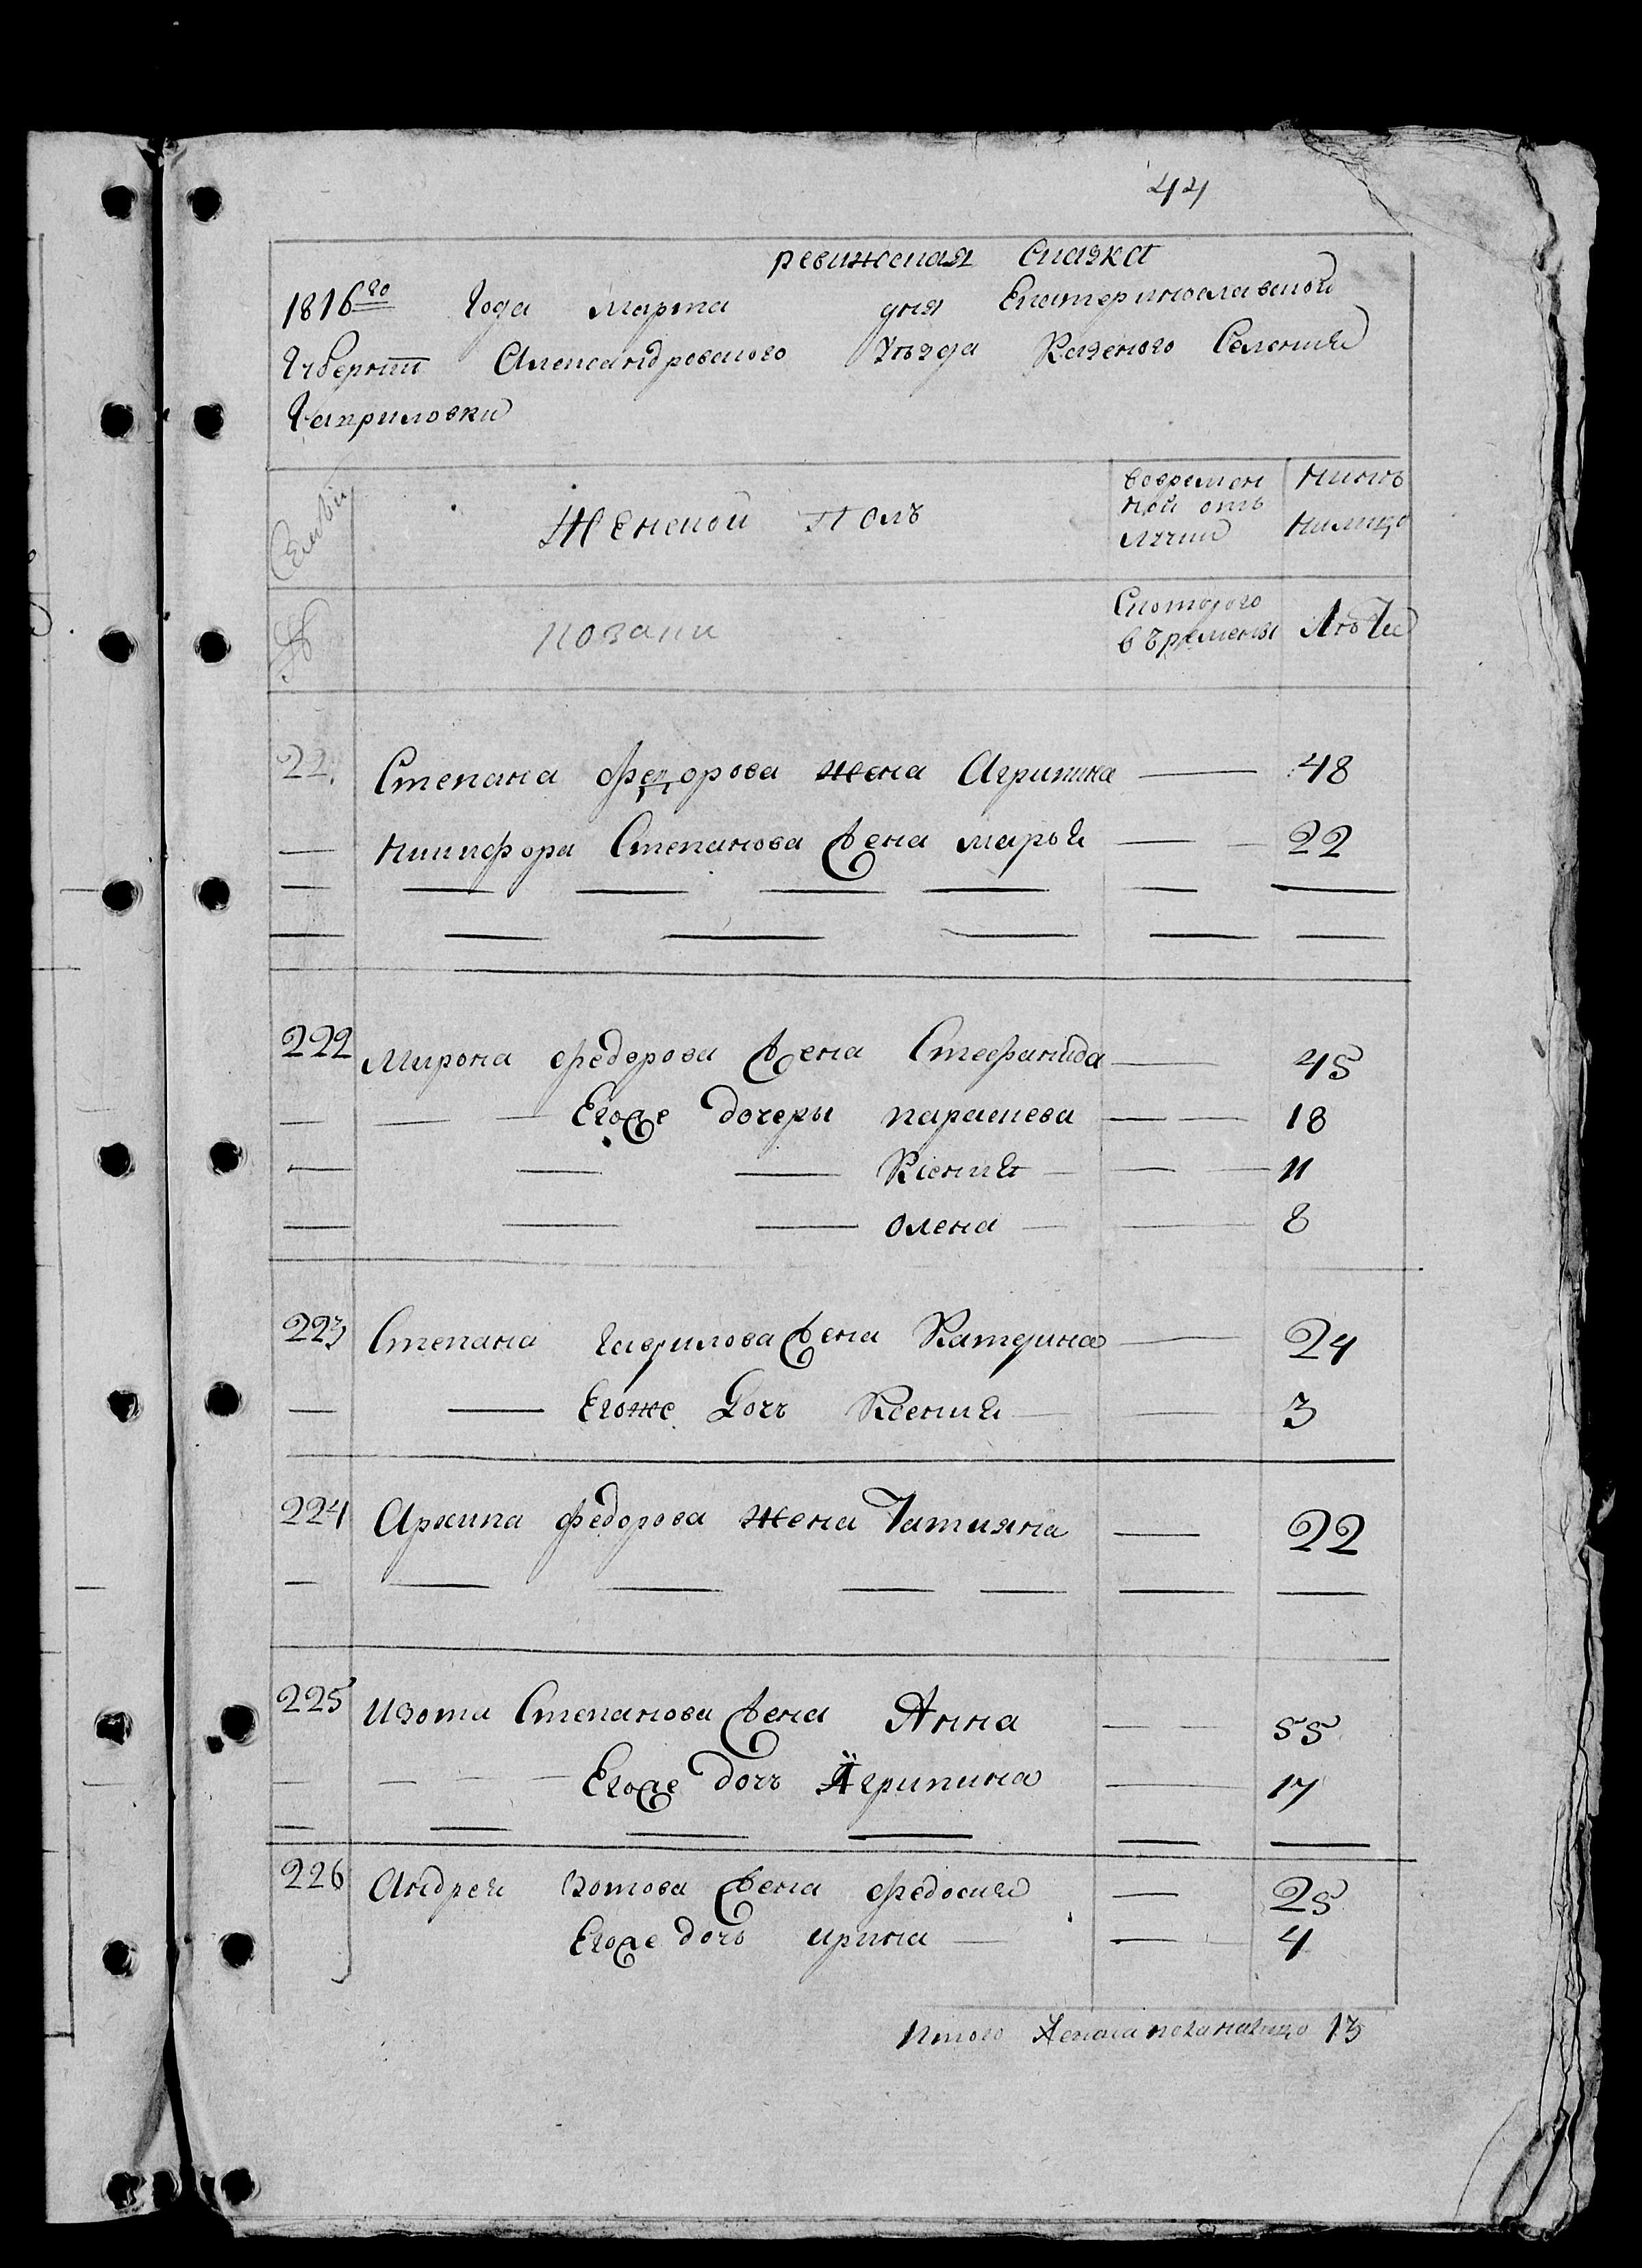 44
ревижская сказка
1816го Года марта дня Екатеринославской
Губернiи Александровского Уѣзда Казеного Селения
Гавриловки
Семьи Женской Полъ вовремен ной отъ лучки Нинѣ налицо
№ Скоторого времени Лѣта
22 Степана федорова жена Агрипина — 48
— Никифора Степанова жена марья — 22
222 Мирона федорова жена Стефанида — 45
— Егоже дочеры параскева — 18
— Ксения — 11
— олена — 8
223 Степана гаврилова жена Катерина — 24
— Егоже Дочъ Ксения — 3
224 Архипа федорова жена Татияна — 22
225 изота Степанова жена Анна — 55
— Егоже дочъ Агрипина — 17
226 Андрея Зотова жена федосия — 25
Егоже дочь ирина — 4
Итого женска пола налицо 13